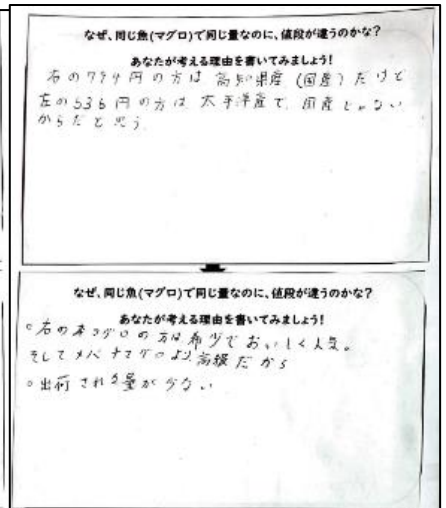 なぜ、同じ魚(マグロ)で同じ量なのに、値段が違うのかな?
あなたが考える理由を書いてみましょう!
右の794円の方は 高知県産(国産)だけど
左の536円の方は 太平洋産で、国産じゃない
からだと思う
なぜ、同じ魚(マグロ)で同じ量なのに、値段が違うのかな?
あなたが考える理由を書いてみましょう!
○右の本マグロの方は希少でおいしく人気。
そしてメバチマグロより高級だから
○出荷される量が少ない